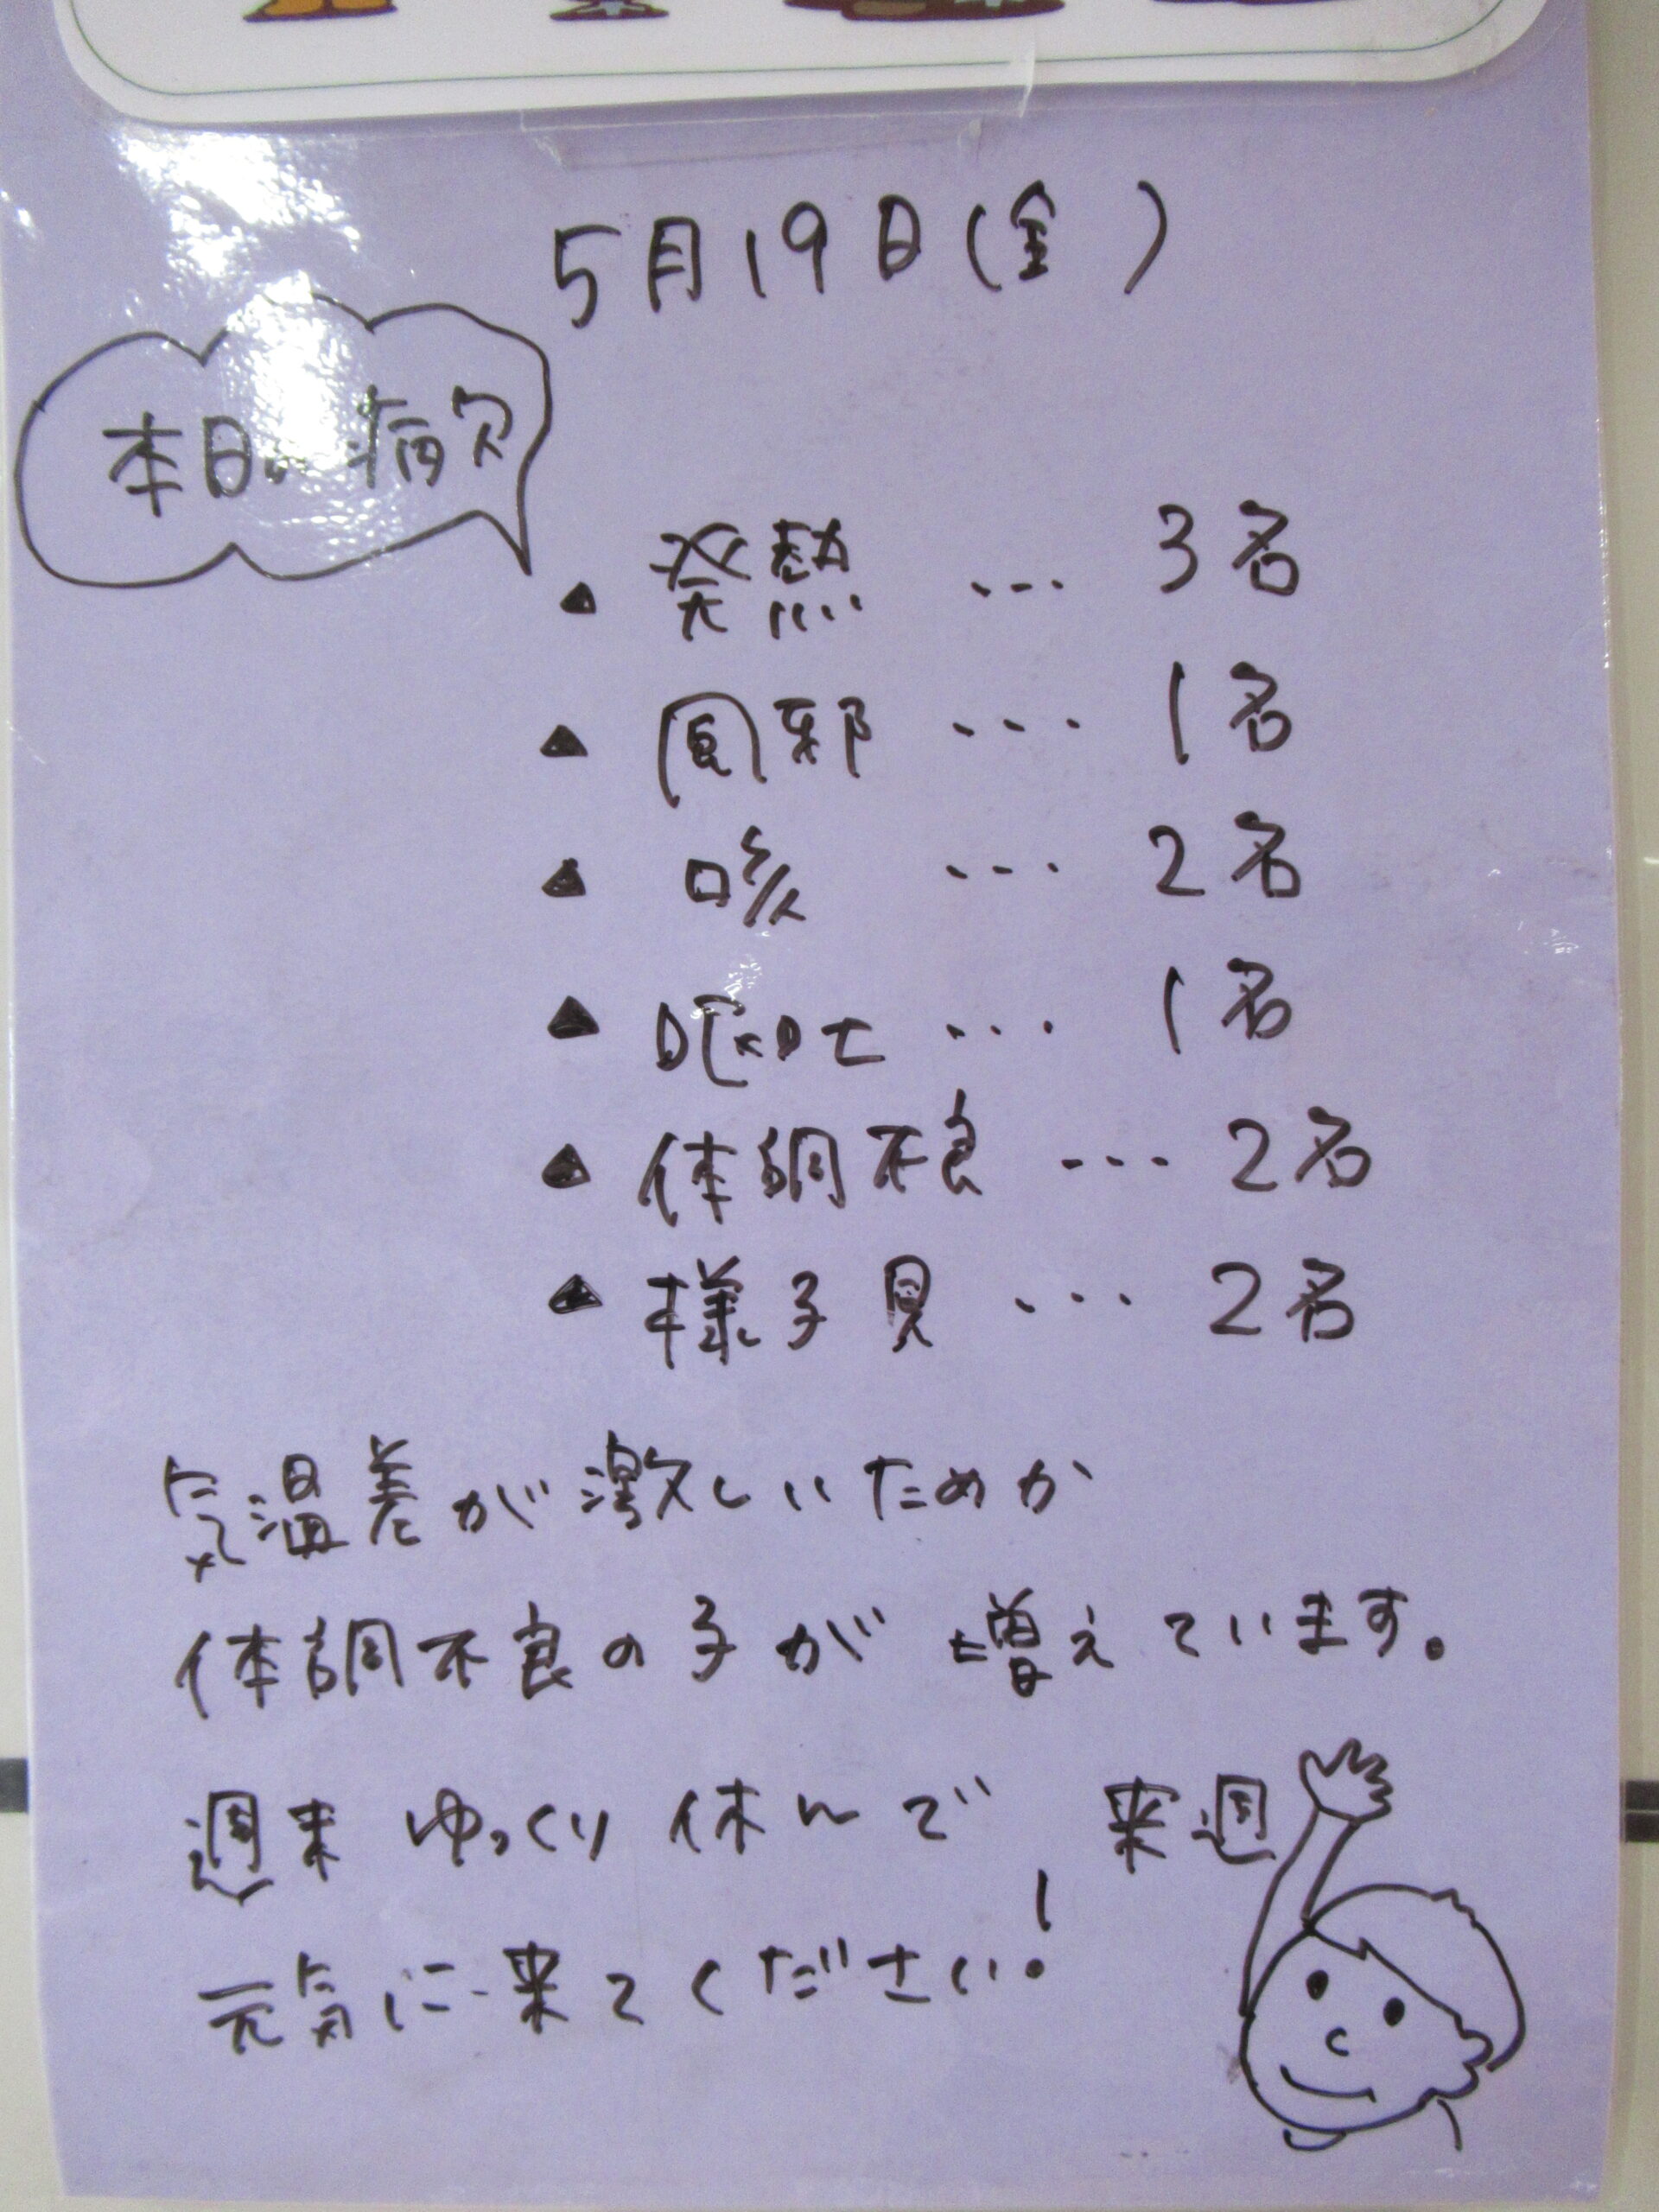 5月19日(金)
本日の病欠
▲ 発熱 … 3名
▲ 風邪 … 1名
▲ 咳 … 2名
▲ 嘔吐 … 1名
▲ 体調不良 … 2名
▲ 様子見 … 2名
気温差が激しいためか
体調不良の子が増えています。
週末ゆっくり休んで 来週
元気に来てください!